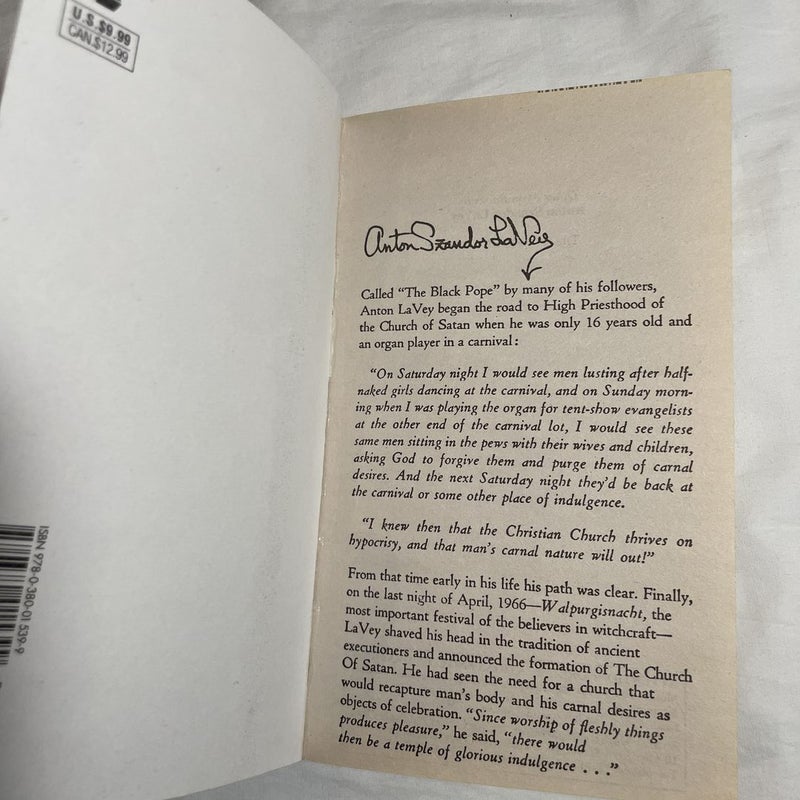 U.S.$9.99
CAN.$12.99
ISBN 978-0-380-01539-9
Anton Szandor LaVey
Called “The Black Pope” by many of his followers,
Anton LaVey began the road to High Priesthood of
the Church of Satan when he was only 16 years old and
an organ player in a carnival:
“On Saturday night I would see men lusting after half-
naked girls dancing at the carnival, and on Sunday morn-
ing when I was playing the organ for tent-show evangelists
at the other end of the carnival lot, I would see these
same men sitting in the pews with their wives and children,
asking God to forgive them and purge them of carnal
desires. And the next Saturday night they’d be back at
the carnival or some other place of indulgence.
“I knew then that the Christian Church thrives on
hypocrisy, and that man’s carnal nature will out!”
From that time early in his life his path was clear. Finally,
on the last night of April, 1966—Walpurgisnacht, the
most important festival of the believers in witchcraft—
LaVey shaved his head in the tradition of ancient
executioners and announced the formation of The Church
Of Satan. He had seen the need for a church that
would recapture man’s body and his carnal desires as
objects of celebration. “Since worship of fleshly things
produces pleasure,” he said, “there would
then be a temple of glorious indulgence . . .”